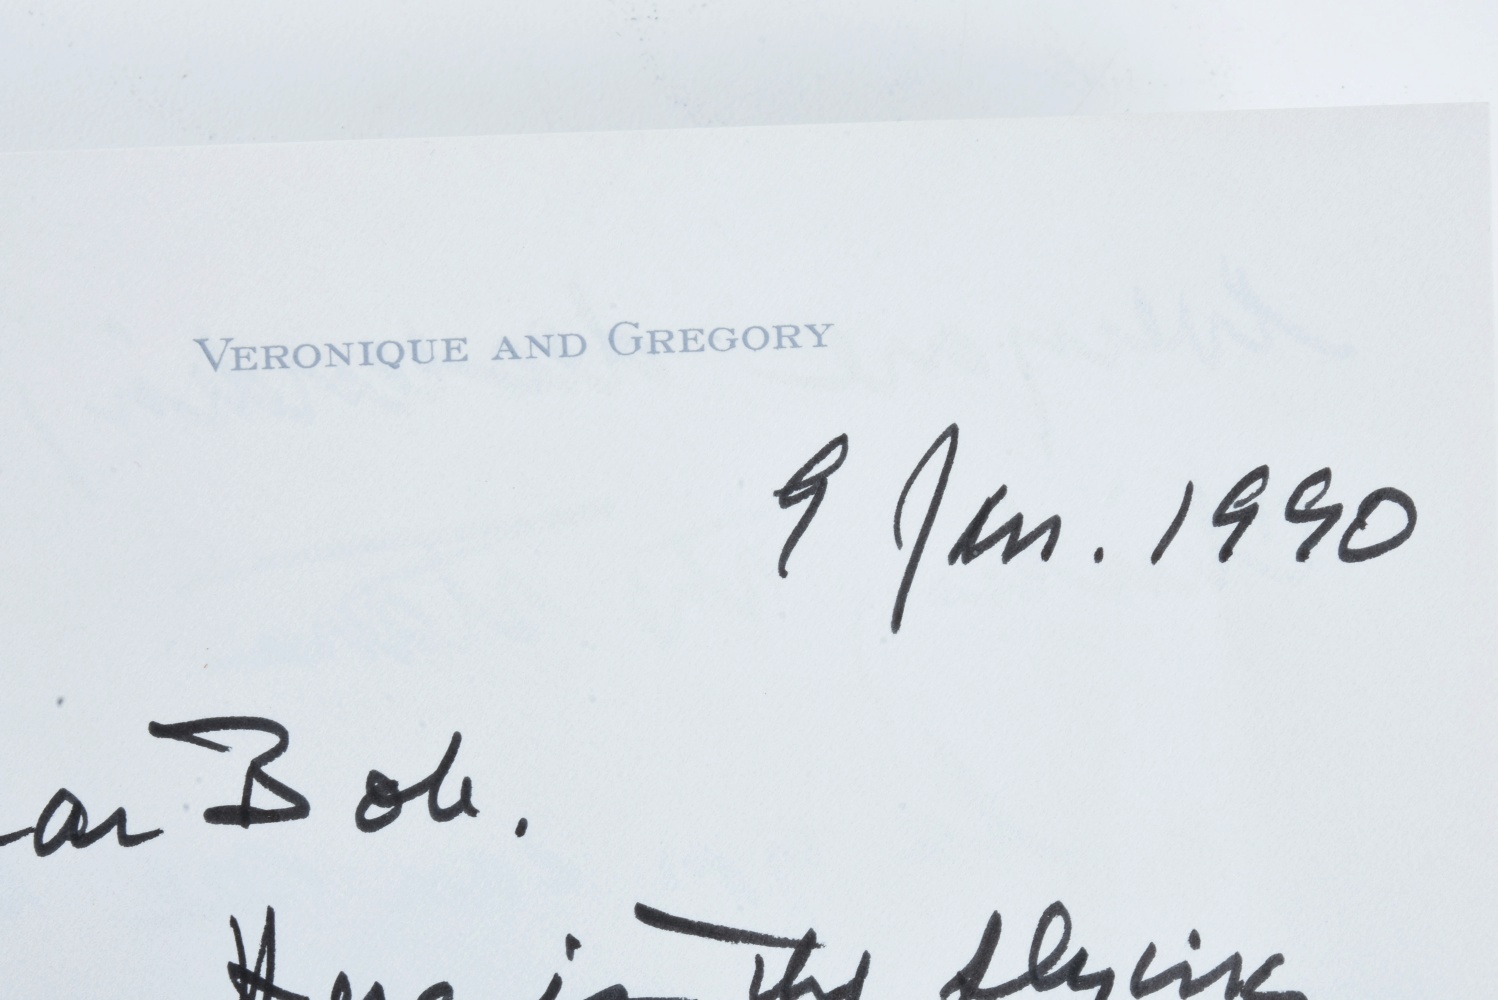 VERONIQUE AND GREGORY
9 Jan. 1990
ar Bob.
Here is the flying